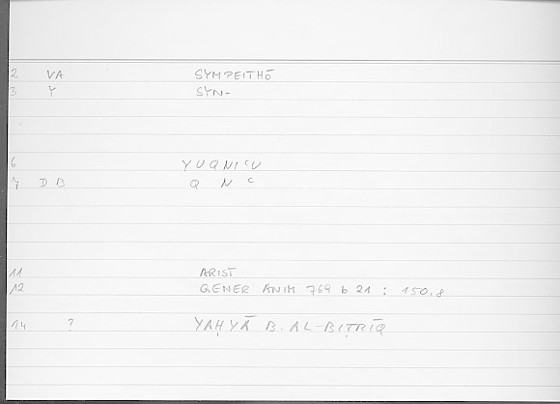 2 VA SYMPEITHŌ
3 Y SYN-
6 YUQNIᶜU
7 DB Q N ᶜ
11 ARIST
12 GENER ANIM 769 b 21 : 150,8
14 ? YAḤYĀ B. AL-BIṬRĪQ